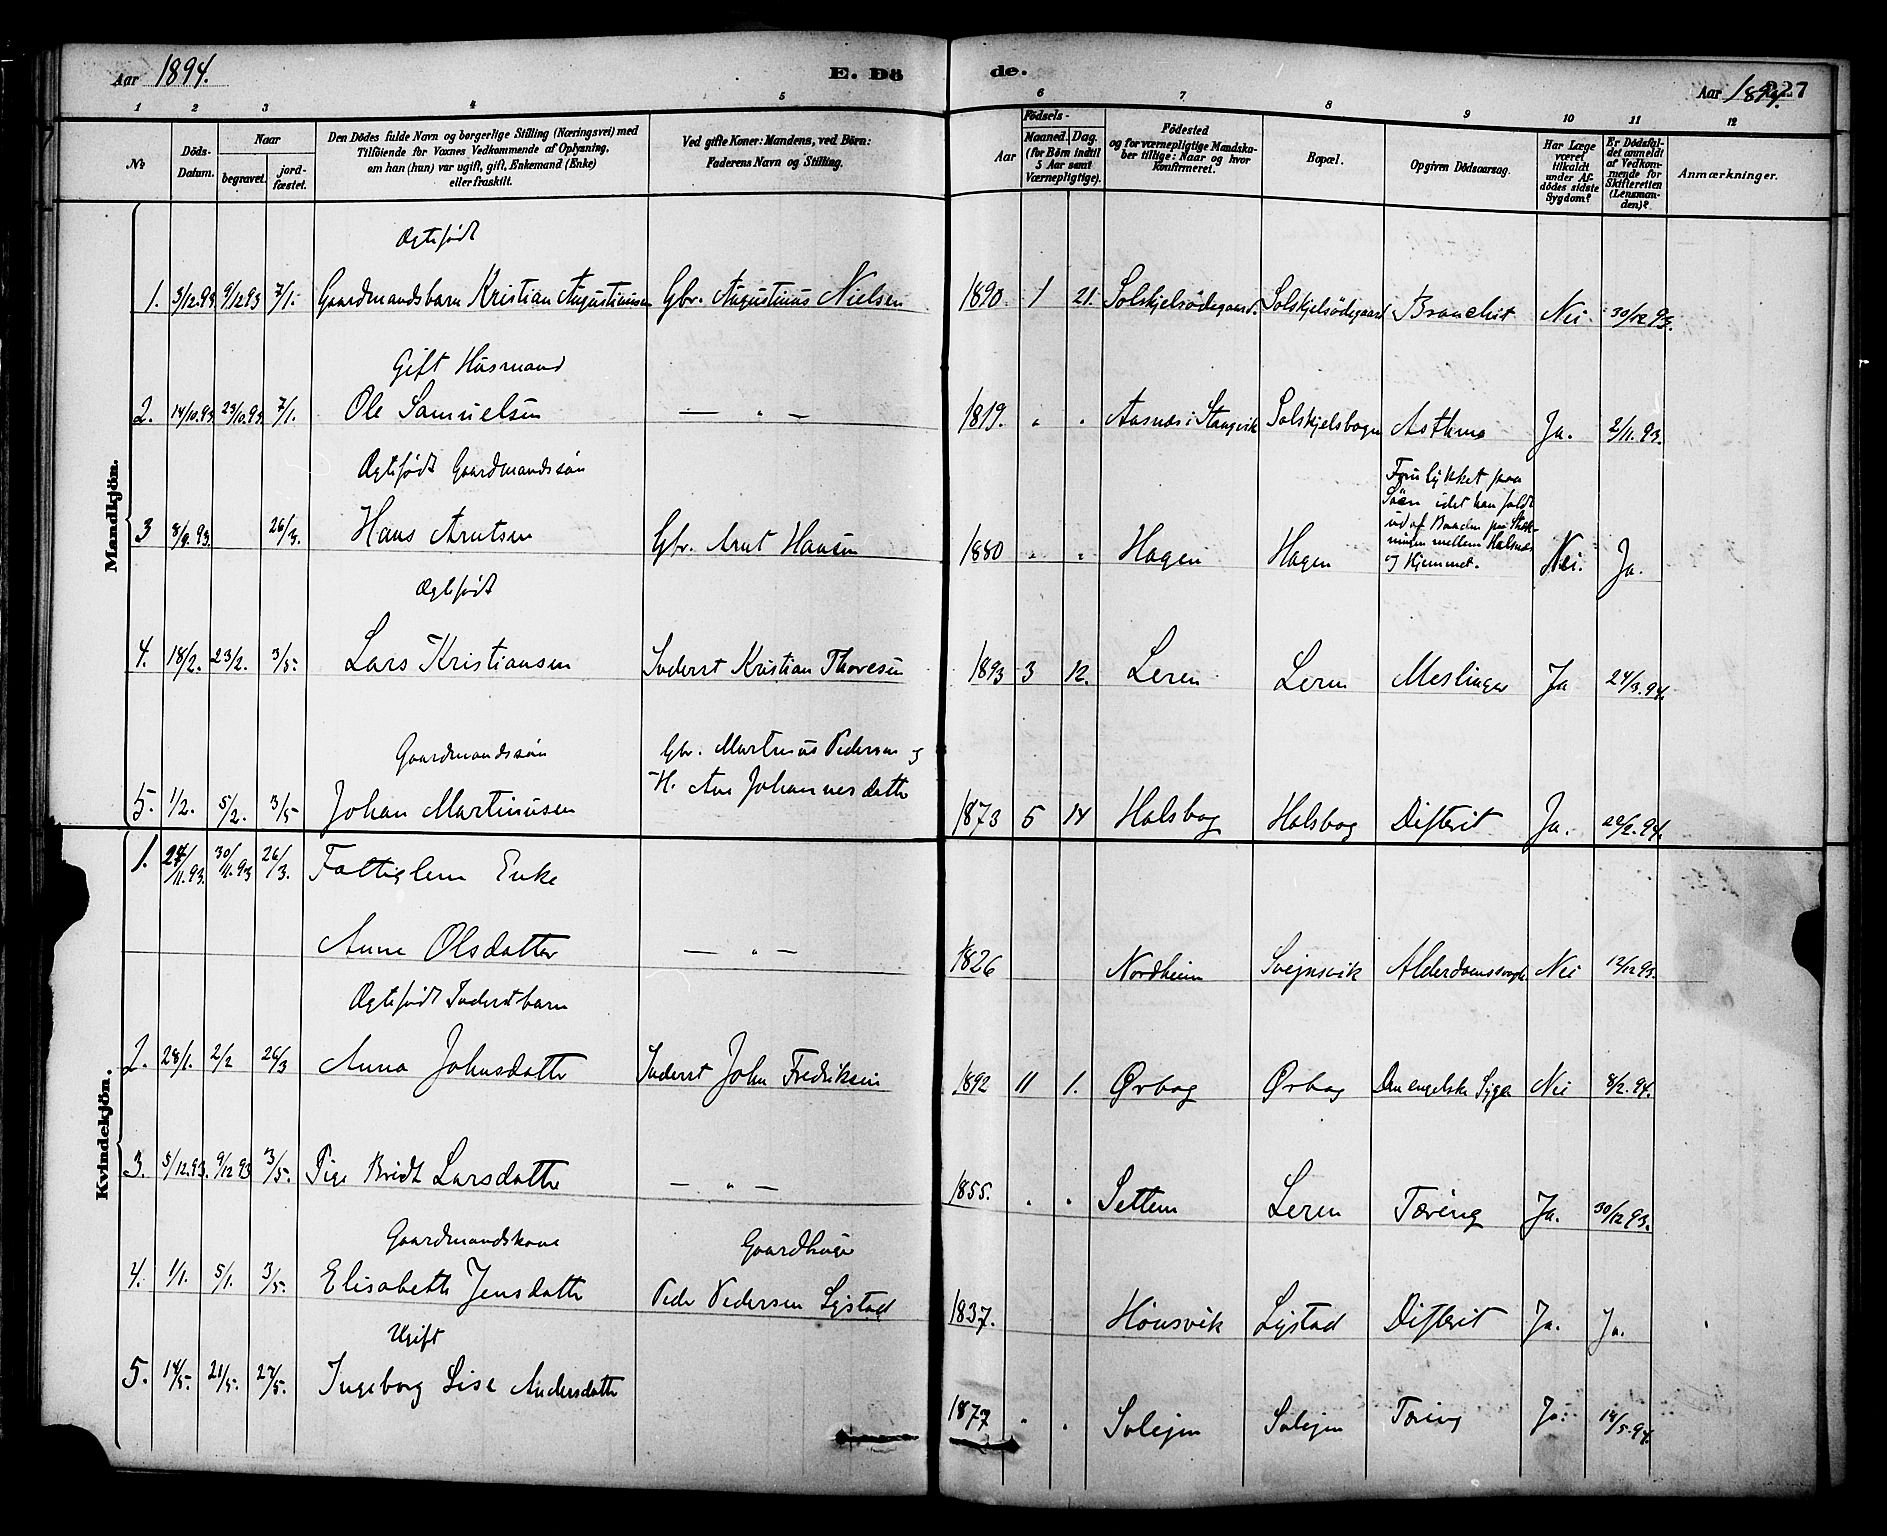 Aar 1894. E. Dö de. Aar 1894. 227
1 2 3 4 5 6 7 8 9 10 11 12
No
Döds-Datum.
Naar
begravet.
jord-fæstet.
Den Dödes fulde Navn og borgerlige Stilling (Næringsvei) med
Tilföiende for Voxnes Vedkommende af Oplysning,
om han (hun) var ugift, gift, Enkemand (Enke)
eller fraskilt.
Ved gifte Koner: Mandens, ved Börn:
Faderens Navn og Stilling.
Födsels-
Aar
Maaned. Dag.
(for Börn indtil
5 Aar samt
Værnepligtige).
Födested
og for værnepligtige Mandska-
ber tillige: Naar og hvor
konfirmeret.
Bopæl.
Opgiven Dödsaarsag.
Har Læge
været
tilkaldt
under Af-
dödes sidste
Sygdom?
Er Dödsfal-
det anmeldt
af Vedkom-
mende for
Skifteretten
(Lensman-
den)?
Anmærkninger.
Mandkjön.
Ægtefödt
1. 3/12.93 9/12 93 7/1. Gaardmandsbarn Kristian Augustinusen Gbr. Augustinus Nielsen 1890 1 21. Solskjelsödegaard. Solskjelsödegaard Bronchit Nei 30/12 93.
Gift Husmand
2. 14/10.93 23/10.93. 7/1. Ole Samuelsen — " — 1819. " " Aasnes i Stangvik Solskjelsbogen Asthma Ja. 2/11.93.
Ægtefödt Gaardmandssön
Forulykket paa
Söen idet han faldt
ud af Baaden paa
mellem Halsnes
og Hjemmet.
3 8/9.93. 26/3. Hans Arntsen Gbr. Arnt Hansen 1880 " " Hagen Hagen Nei. Ja.
Ægtefödt
4. 18/2. 23/2. 3/5. Lars Kristiansen Inderst Kristian Thoresen 1893 3 12. Leren Leren Meslinger Ja 24/3.94.
Gaardmandssön Gbr. Martinus Pedersen og
H. Ane Johannesdatter
5. 1/2. 5/2. 3/5 Johan Martinusen 1873 5 14 Halsbog Halsbog Difterit Ja. 22/2.94.
Kvindekjön.
1. 24/11.93. 30/11.93 26/3. Fattiglem Enke
Anne Olsdatter — " — 1826 Nordheim Svejnsvik Alderdomssvagh. Nei 12/12 93.
Ægtefödt Inderstbarn
2. 28/1. 2/2 26/3 Anna Johnsdatter Inderst John Fredriksen 1892 11 1. Ørbog Ørbog Den engelske Syge Nei 8/2.94.
3. 5/12.93. 9/12 93 3/5. Pige Bridt Larsdatter — " — 1855. " " Settem Leren Tæring Ja. 30/12 93.
Gaardmandskone Gaardbruger
4. 1/1. 5/1. 3/5. Elisabeth Jensdatter Peder Pedersen Lystad 1837. Hønsvik Lystad Difterit Ja. Ja.
Ugift
5. 14/5. 21/5. 27/5. Ingeborg Lise Andersdatter 1877 " " Solejen Solejen Tæring Ja. 14/5.94.